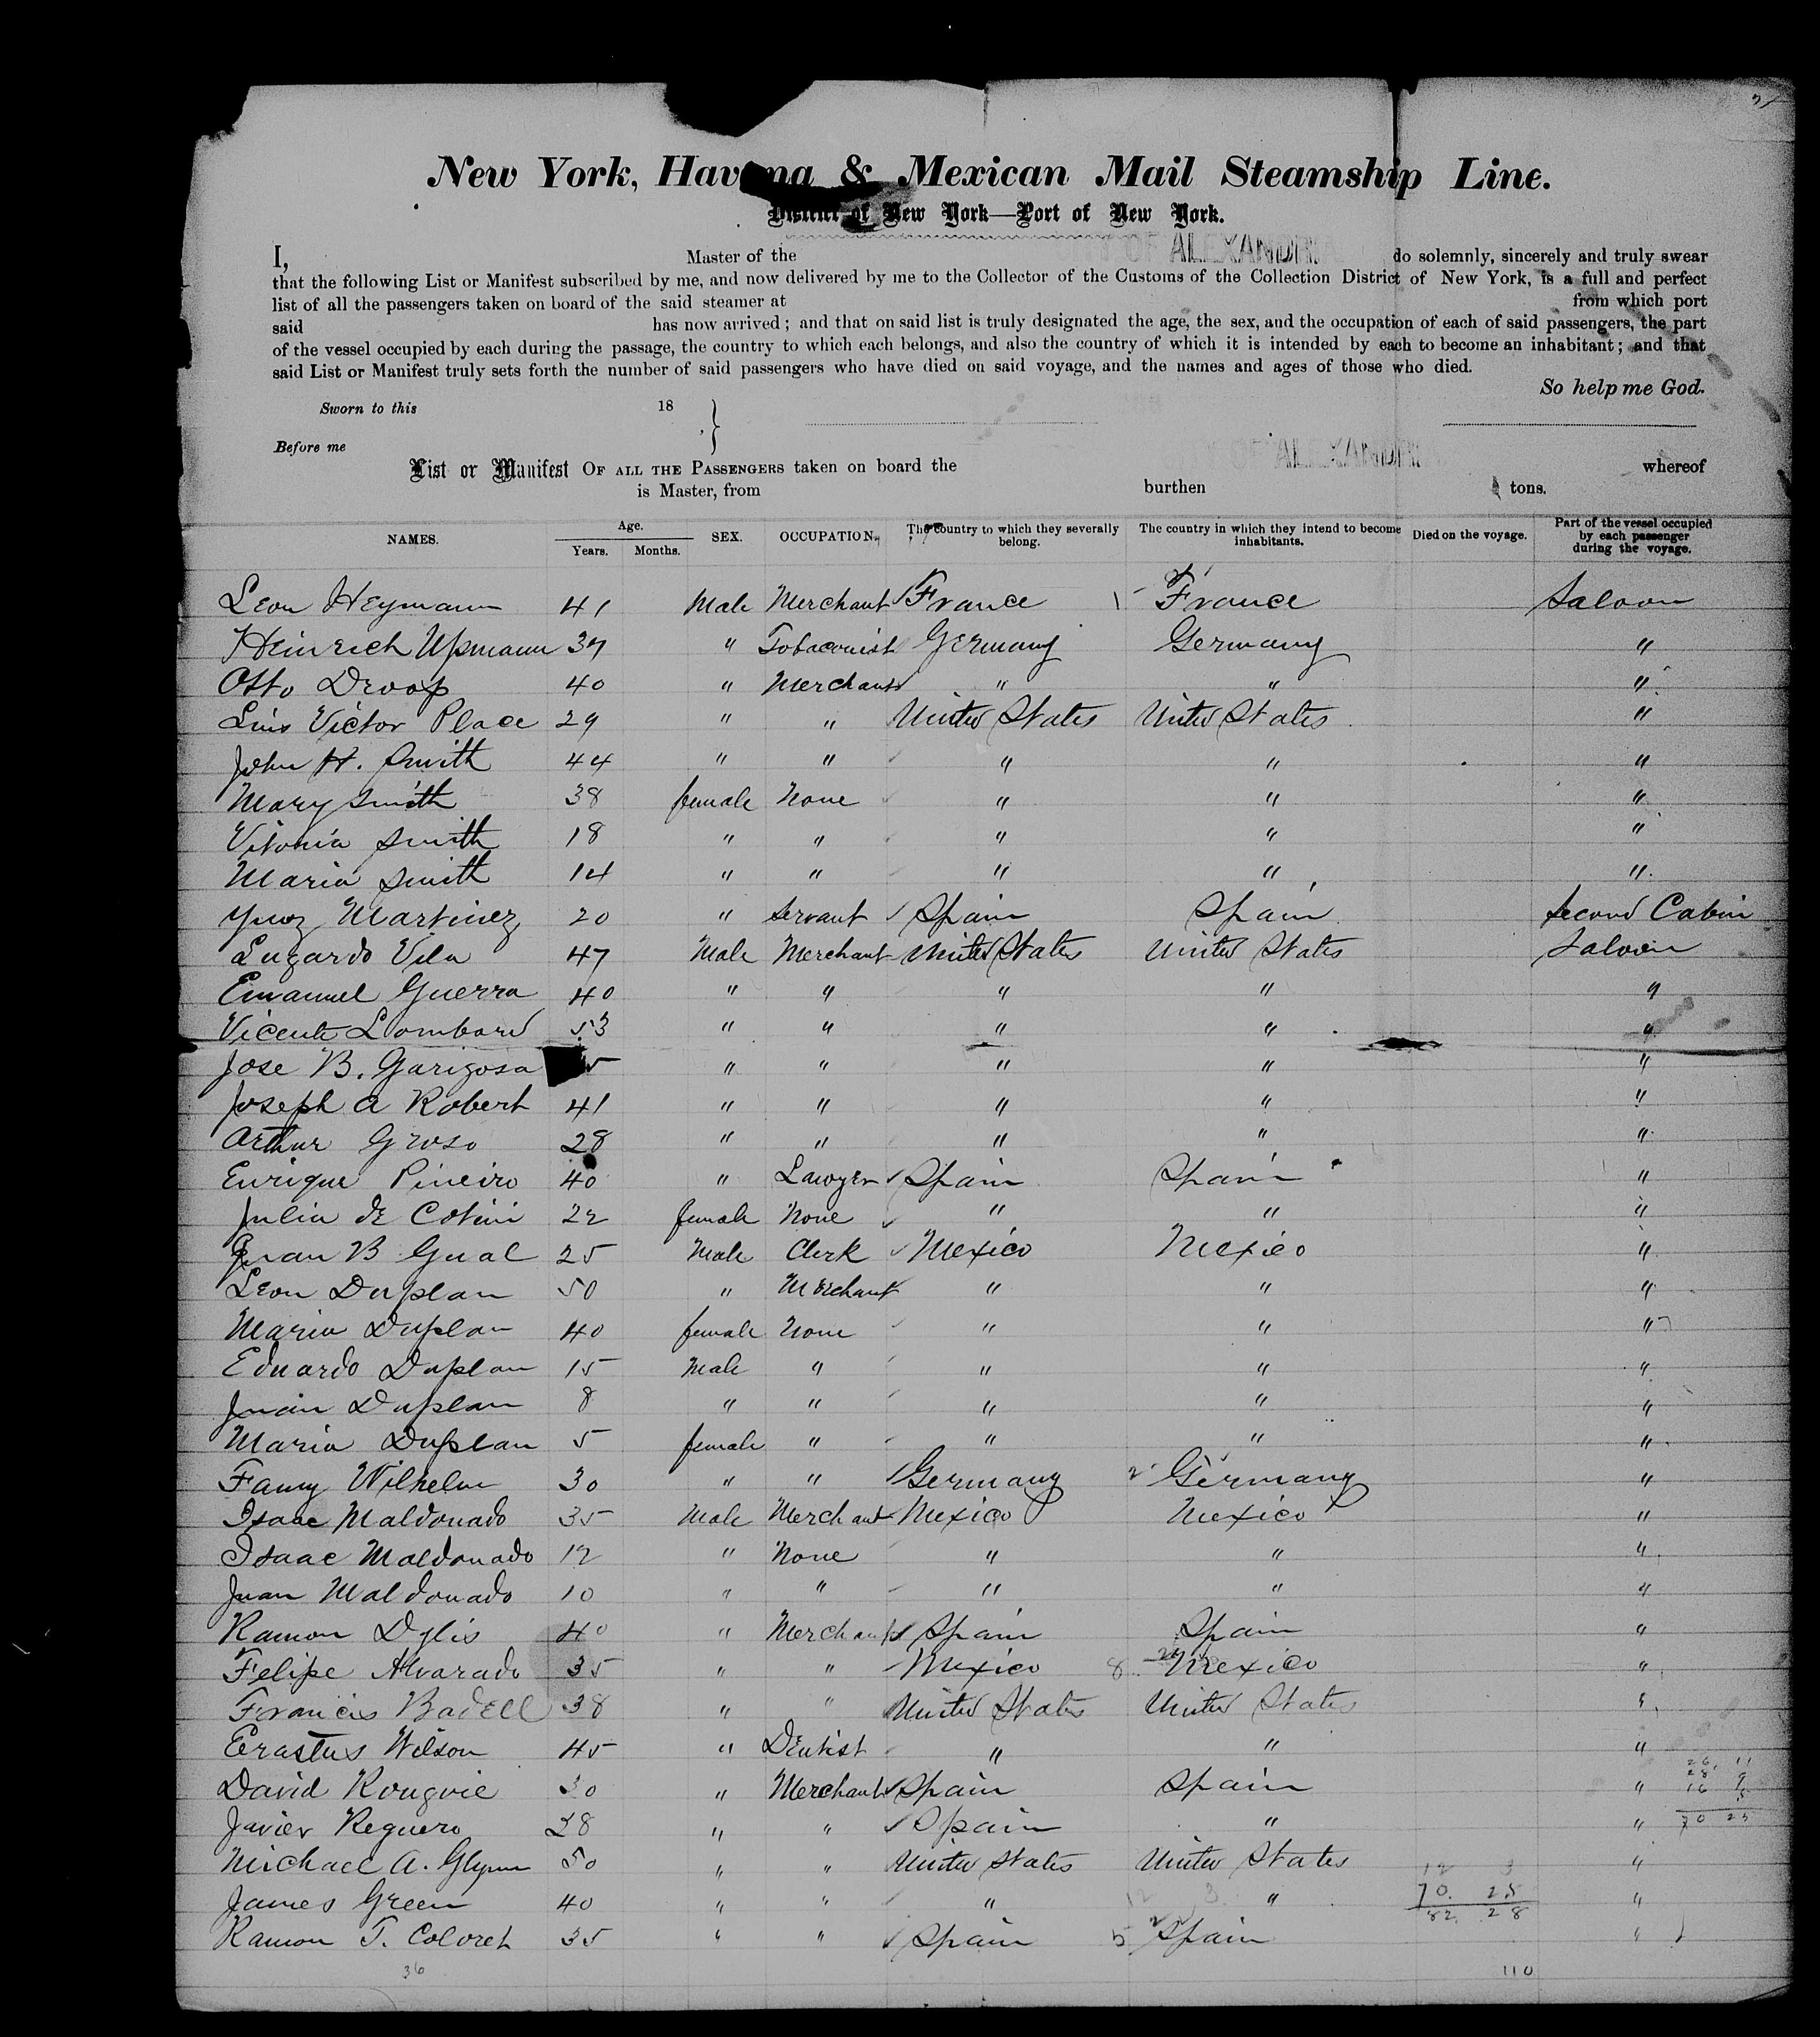 New York, Havana & Mexican Mail Steamship Line.
District of New York—Port of New York.
OF ALEXANDRIA
I, Master of the do solemnly, sincerely and truly swear
that the following List or Manifest subscribed by me, and now delivered by me to the Collector of the Customs of the Collection District of New York, is a full and perfect
list of all the passengers taken on board of the said steamer at from which port
said has now arrived; and that on said list is truly designated the age, the sex, and the occupation of each of said passengers, the part
of the vessel occupied by each during the passage, the country to which each belongs, and also the country of which it is intended by each to become an inhabitant; and that
said List or Manifest truly sets forth the number of said passengers who have died on said voyage, and the names and ages of those who died.
So help me God.
Sworn to this 18
Before me
OF ALEXANDRI
List or Manifest OF ALL THE PASSENGERS taken on board the whereof
is Master, from burthen tons.
NAMES. Age. Years. Months. SEX. OCCUPATION. The country to which they severally belong. The country in which they intend to become inhabitants. Died on the voyage. Part of the vessel occupied by each passenger during the voyage.
Leon Heymann 41 Male Merchant France 1 France Saloon
Heinrich Upmann 37 " Tobaconist Germany Germany "
Otto Droop 40 " Merchant " " "
Luis Victor Place 29 " " United States United States "
John H. Smith 44 " " " " "
Mary Smith 38 female None " " "
Vitonia Smith 18 " " " " "
Maria Smith 14 " " " " "
Martinez 20 " Servant Spain Spain Second Cabin
Lugardo Vila 47 Male Merchant United States United States Saloon
Emanuel Guerra 40 " " " " "
Vicente Lombard 53 " " " " "
Jose B. Garigosa 5 " " " " "
Joseph A Robert 41 " " " " "
Arthur Groso 28 " " " " "
Enrique Pineiro 40 " Lawyer Spain Spain "
Julia de Cotini 22 female None " " "
Juan B Gual 25 Male Clerk Mexico Mexico "
Leon Duplan 50 " Merchant " " "
Maria Duplan 40 female None " " "
Eduardo Duplan 15 Male " " " "
Juan Duplan 8 " " " " "
Maria Duplan 5 female " " " "
Fanny Wilhelm 30 " " Germany 2 Germany "
Isaac Maldonado 35 Male Merchant Mexico Mexico "
Isaac Maldonado 12 " None " " "
Juan Maldonado 10 " " " " "
Ramon Dylis 40 " Merchant Spain Spain "
Felipe Alvarado 35 " " Mexico 8 Mexico "
Francis Badell 38 " " United States United States "
Erastus Wilson 45 " Dentist " " "
David Rougvie 30 " Merchant Spain Spain "
Javier Reguero 28 " " Spain " "
Michael A. Glynn 50 " " United States United States "
James Green 40 " " " 12 3 " "
Ramon T. Coloret 35 " " Spain 5 Spain "
26 11
28 9
16 5
70 25
12 3
70. 25
82. 28
36 110